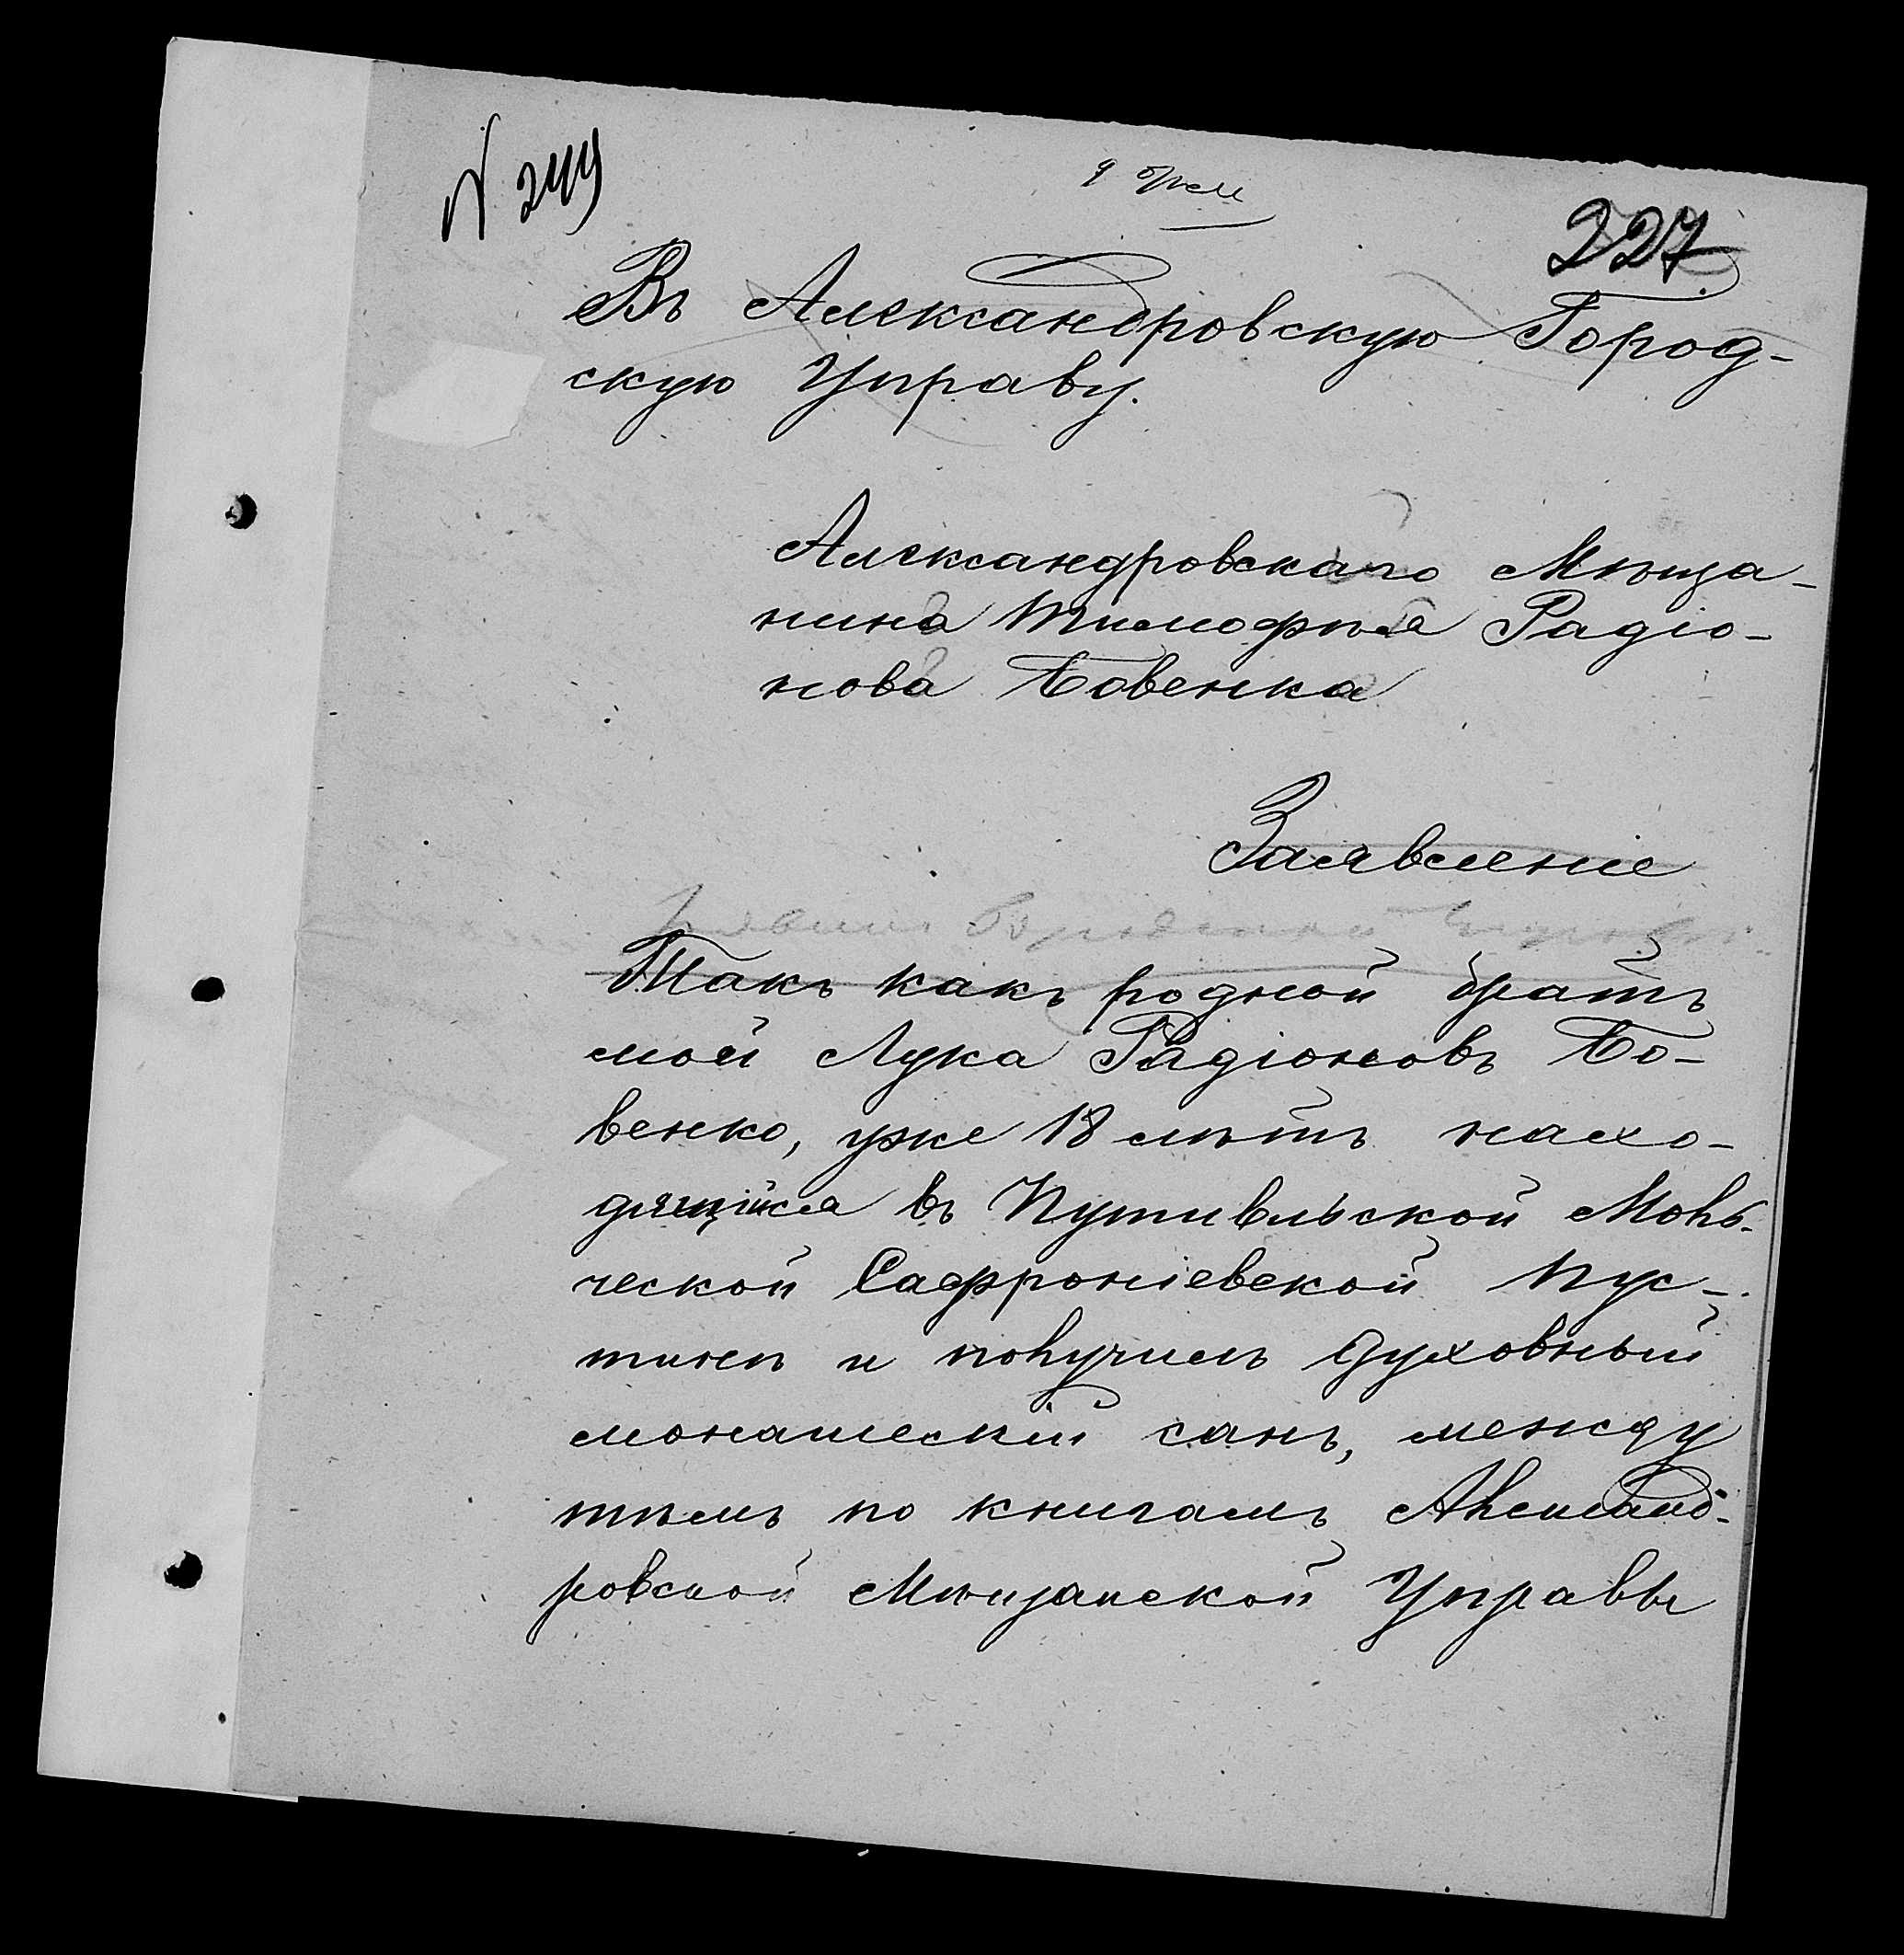 № 244
227
Въ Александровскую Город-
скую Управу.
Александровскаго Мѣща-
нина Тимофѣя Радіо-
нова Бовенка
Заявленіе
Такъ какъ родной братъ
мой Лука Радіоновъ Бо-
венко, уже 18 лѣтъ нахо-
дящійся въ Путивльской
ческой Сафроніевской Пус-
тинѣ и получилъ духовный
монашескій санъ, между
тѣмъ по книгамъ Александ-
ровской Мѣщанской Управы